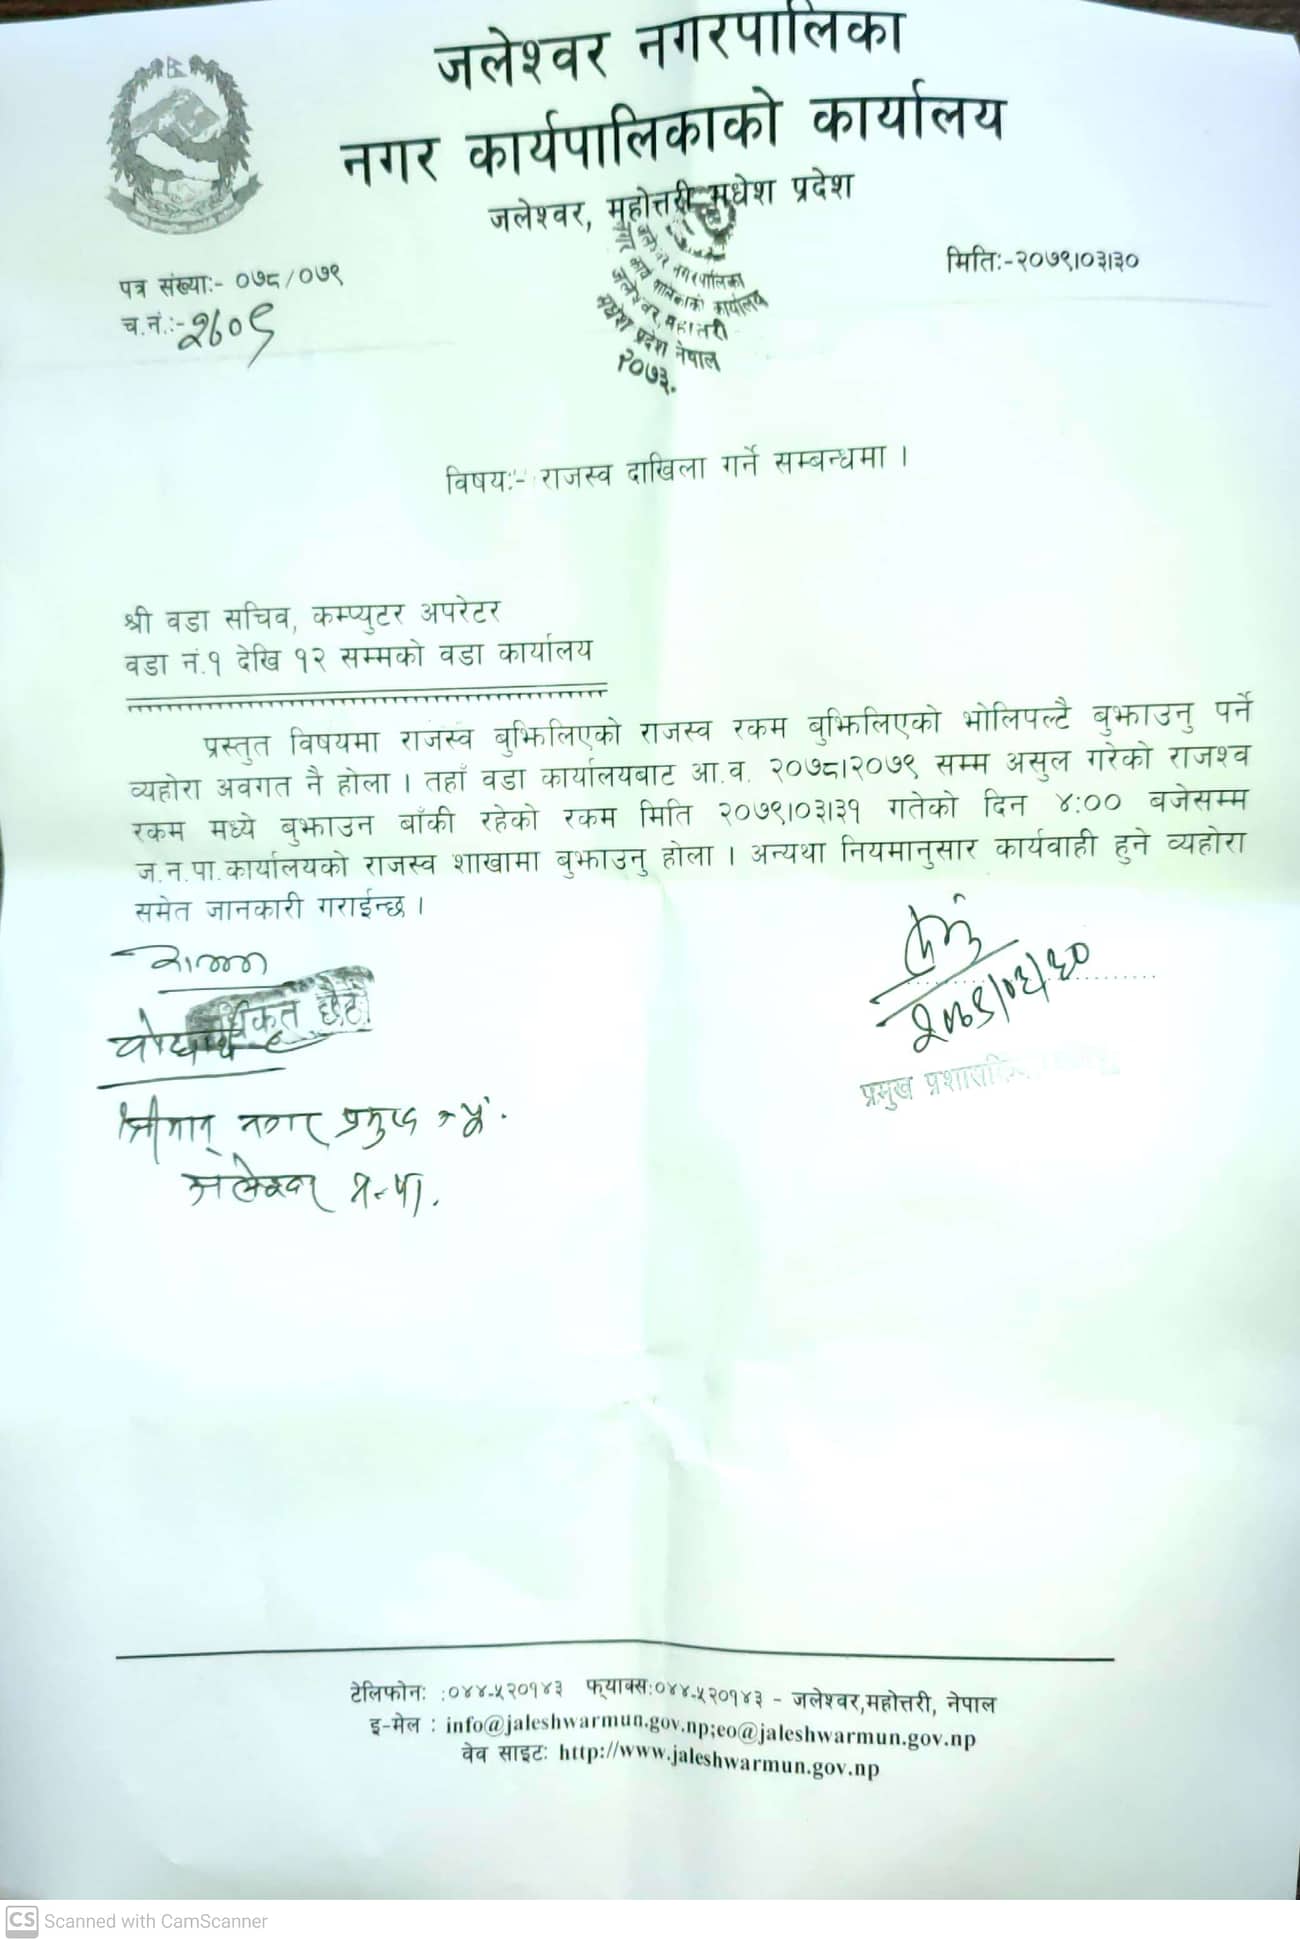 जलेश्वर नगरपालिका
नगर कार्यपालिकाको कार्यालय
जलेश्वर, महोत्तरी मधेश प्रदेश
जलेश्वर नगरपालिका
नगर कार्य पालिकाको कार्यालय
जलेश्वर, महोत्तरी
मधेश प्रदेश नेपाल
२०७३.
मितिः-२०७९।०३।३०
पत्र संख्याः- ०७८/०७९
च.नं.:-२६०९
विषयः- राजस्व दाखिला गर्ने सम्बन्धमा ।
श्री वडा सचिव, कम्प्युटर अपरेटर
वडा नं.१ देखि १२ सम्मको वडा कार्यालय
प्रस्तुत विषयमा राजस्व बुझिलिएको राजस्व रकम बुझिलिएको भोलिपल्टै बुझाउनु पर्ने
व्यहोरा अवगत नै होला । तहाँ वडा कार्यालयबाट आ.व. २०७८।२०७९ सम्म असुल गरेको राजश्व
रकम मध्ये बुझाउन बाँकी रहेको रकम मिति २०७९।०३।३१ गतेको दिन ४:०० बजेसम्म
ज.न.पा.कार्यालयको राजस्व शाखामा बुझाउनु होला । अन्यथा नियमानुसार कार्यवाही हुने व्यहोरा
समेत जानकारी गराईन्छ ।
२०७९/०३/३०
प्रमुख
बोधार्थ
श्रीमान् नगर प्रमुख ज्यू.
जलेश्वर न.पा.
टेलिफोनः :०४४-५२०१४३ फ्याक्स:०४४-५२०१४३ - जलेश्वर,महोत्तरी, नेपाल
इ-मेल : info@jaleshwarmun.gov.np;eo@jaleshwarmun.gov.np
वेव साइटः http://www.jaleshwarmun.gov.np
CS Scanned with CamScanner